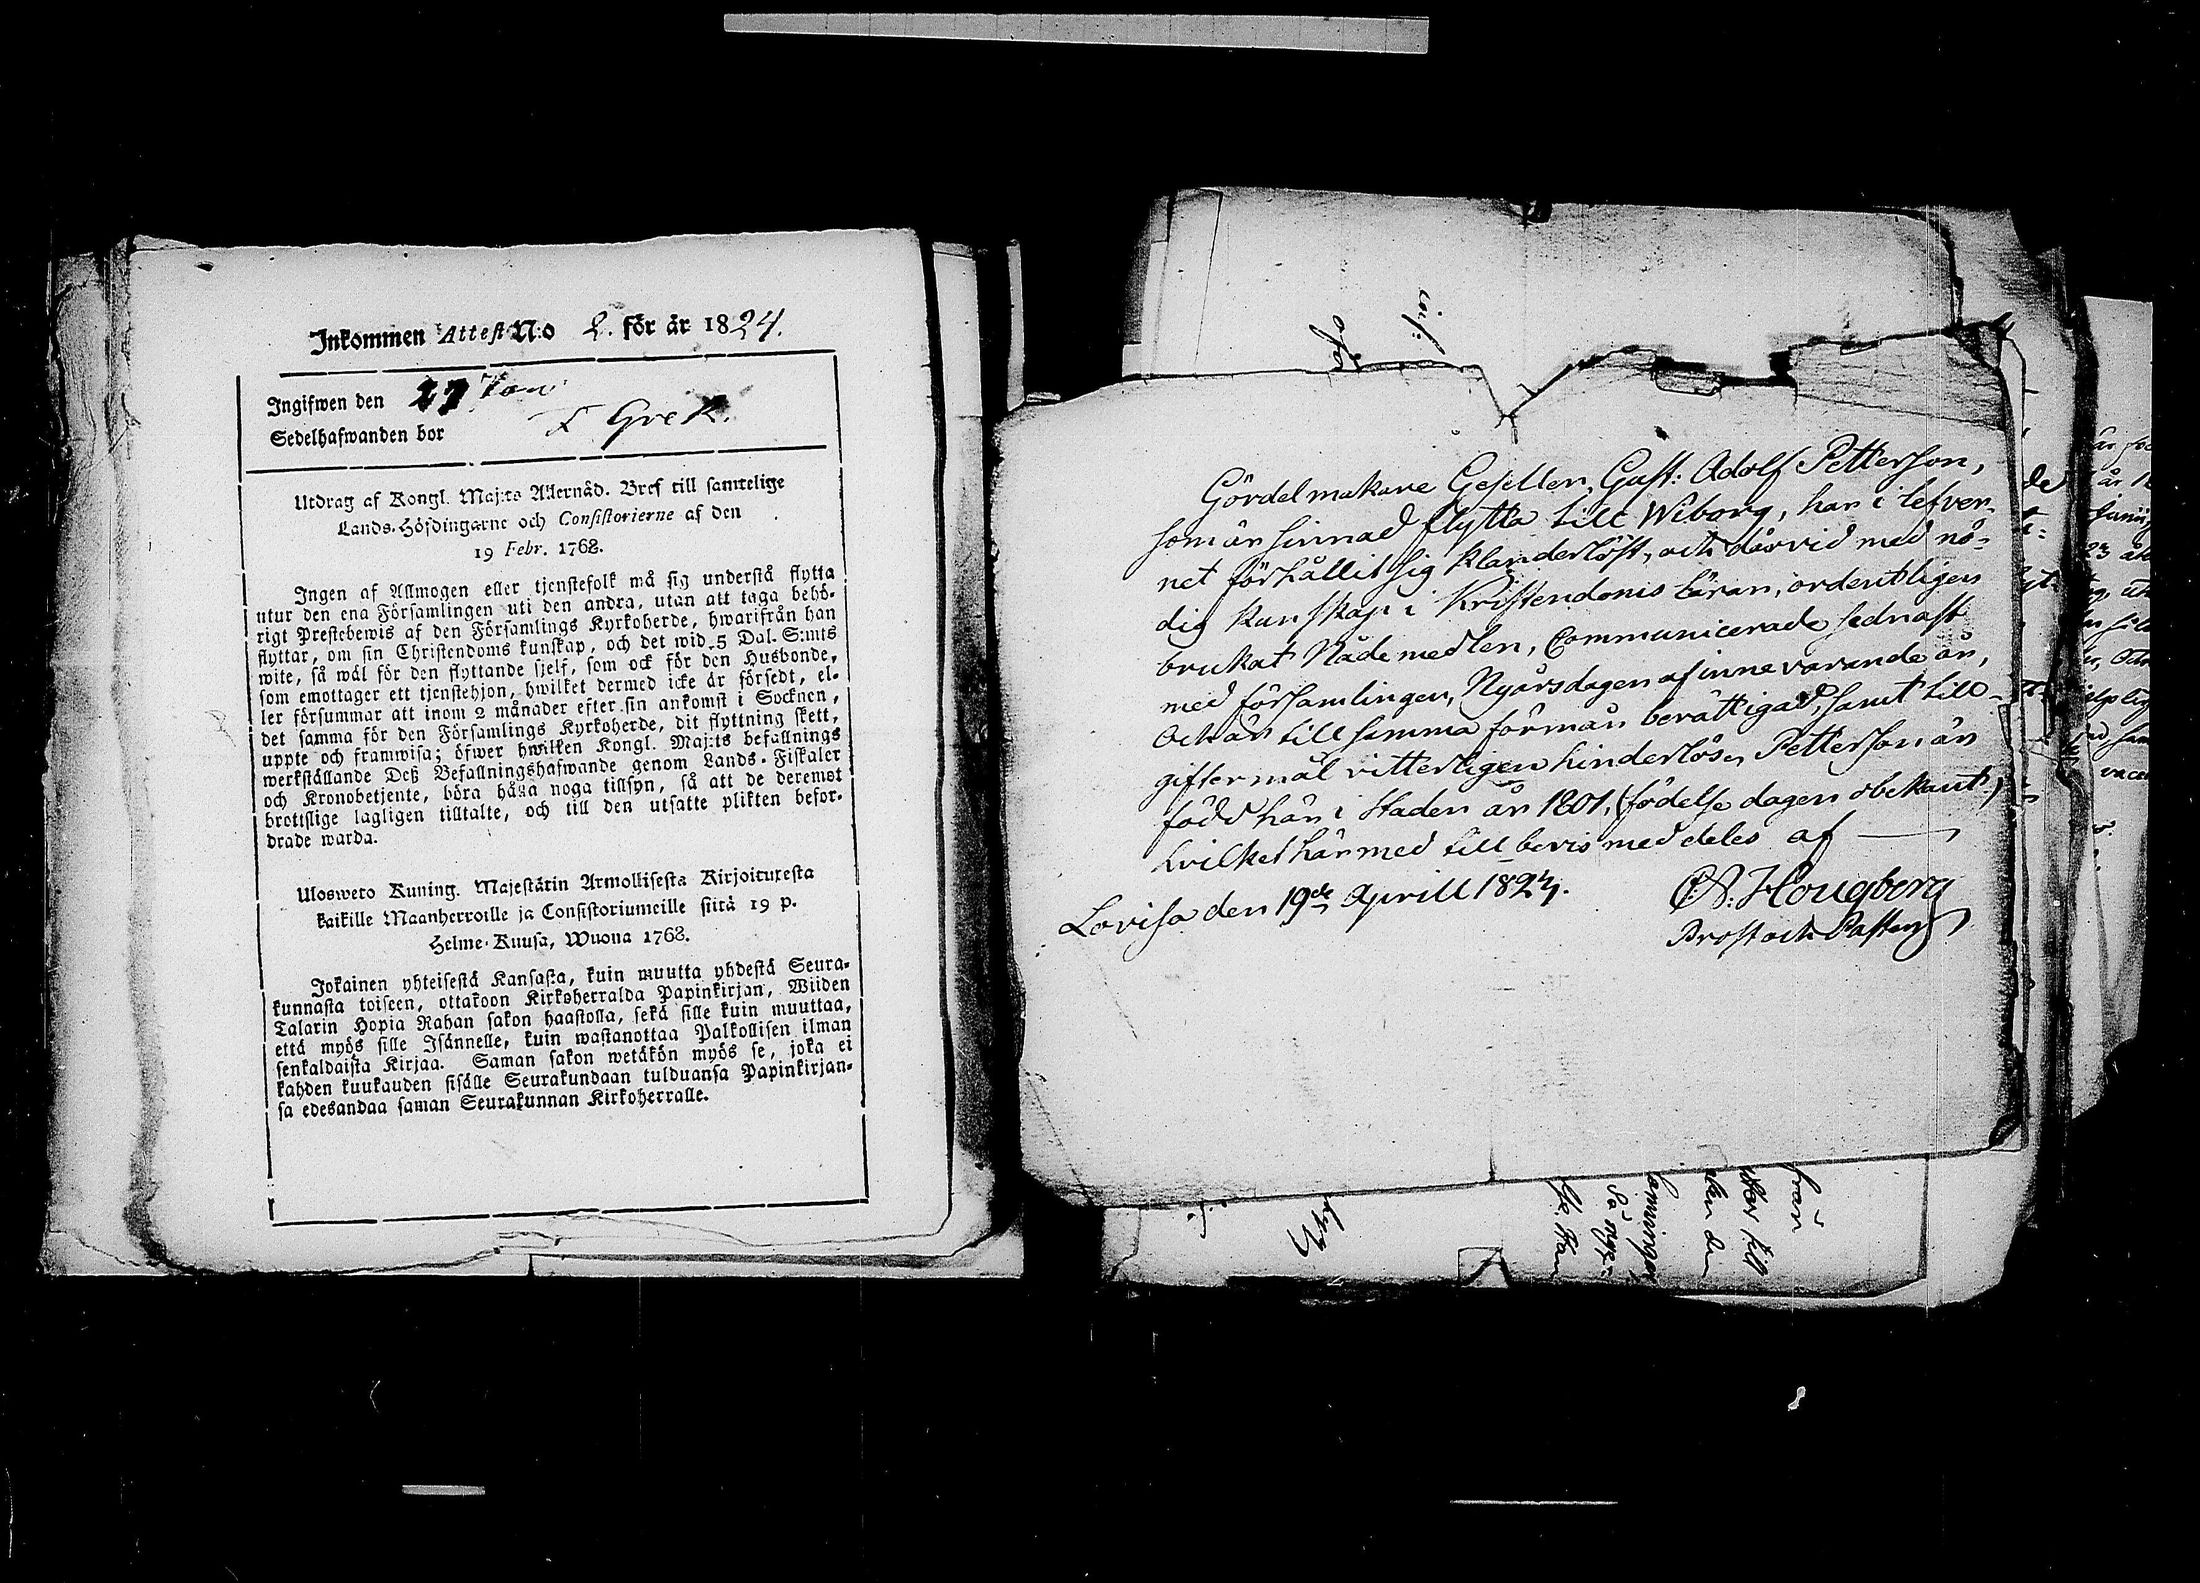 Inkommen Attest N:o 2. för år 1824.
Ingifwen den 27 Jan
Sedelhafwanden bor F Grek.
Utdrag af Kongl. Maj:ts Allernåd. Bref till samtelige
Lands-Höfdingarne och Consistorierne af den
19 Febr. 1768.
Ingen af Allmogen eller tjenstefolk må sig understå flytta
utur den ena Församlingen uti den andra, utan att taga behö-
rigt Prestebewis af den Församlings Kyrkoherde, hwarifrån han
flyttar, om sin Christendoms kunskap, och det wid 5 Dal. S:mts
wite, så wäl för den flyttande sjelf, som ock för den Husbonde,
som emottager ett tjenstehjon, hwilket dermed icke är försedt, el-
ler försummar att inom 2 månader efter sin ankomst i Socknen,
det samma för den Församlings Kyrkoherde, dit flyttning skett,
uppte och framwisa; öfwer hwilken Kongl. Maj:ts befallnings
werkställande Deß Befallningshafwande genom Lands-Fiskaler
och Kronobetjente, böra hålla noga tillsyn, så att de deremot
brottslige lagligen tilltalte, och till den utsatte plikten befor-
drade warda.
Ulosweto Kuning. Majestätin Armollisesta Kirjoituxesta
kaikille Maanherroille ja Consistoriumeille siitä 19 p.
Helme-Kuusa, Wuona 1768.
Jokainen yhteisestä Kansasta, kuin muutta yhdestä Seura-
kunnasta toiseen, ottakoon Kirkoherralda Papinkirjan, Wiiden
Talarin Hopia Rahan sakon haastolla, sekä sille kuin muuttaa,
että myös sille Isännelle, kuin wastanottaa Palkollisen ilman
senkaldaista Kirjaa. Saman sakon wetäkön myös se, joka ei
kahden kuukauden sisälle Seurakundaan tulduansa Papinkirjan-
sa edesandaa saman Seurakunnan Kirkoherralle.
Gördelmakare Gesellen, Gust: Adolf Petterson,
som är sinnad flytta till Wiborg, har i lefver-
net förhållit sig klanderlöst, och därvid med nö-
dig kunskap i Kristendoms läran, ordentligen
brukat Nåde medlen, Communicerade sednast
med församlingen, Nyårsdagen af innevarande år,
Och är till samma förmån berättigad, samt till
giftermål vitterligen hinderlös, Petterson är
född här i Staden år 1801, (födelse dagen obekant)
hvilket härmed till bevis meddeles af
Lovisa den 19de Aprill 1824.
Hougberg
Prost och Pastor